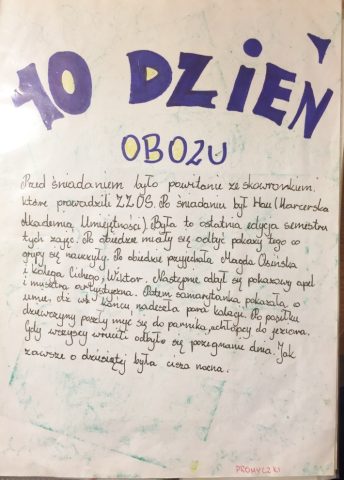 10 DZIEŃ
OBOZU
Przed śniadaniem było powitanie ze skowronkiem,
które prowadzili ZZOS. Po śniadaniu był Hau (Harcerska
Akademia Umiejętności). Była to ostatnia edycja semestru
tych zajęć. Po obiedzie miały się odbyć pokazy tego co
grupy się nauczyły. Po obiedzie przyjechała Magda Osińska
i kolega Cichego, Wiktor. Następnie odbył się pokazowy apel
i musztra artystyczna. Potem samarytanka pokazała co
umie, aż w końcu nadeszła pora kolacji. Po posiłku
dziewczyny poszły myć się do parnika, chłopcy do jeziora.
Gdy wszyscy wrócili odbyło się pożegnanie dnia. Jak
zawsze o dziesiątej była cisza nocna.
PROMYCZKI